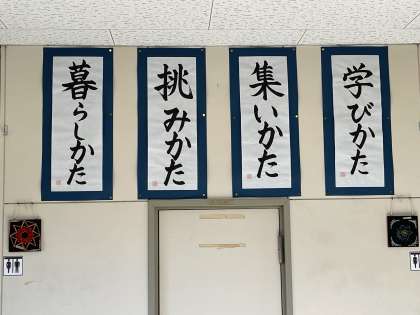 学びかた
集いかた
挑みかた
暮らしかた